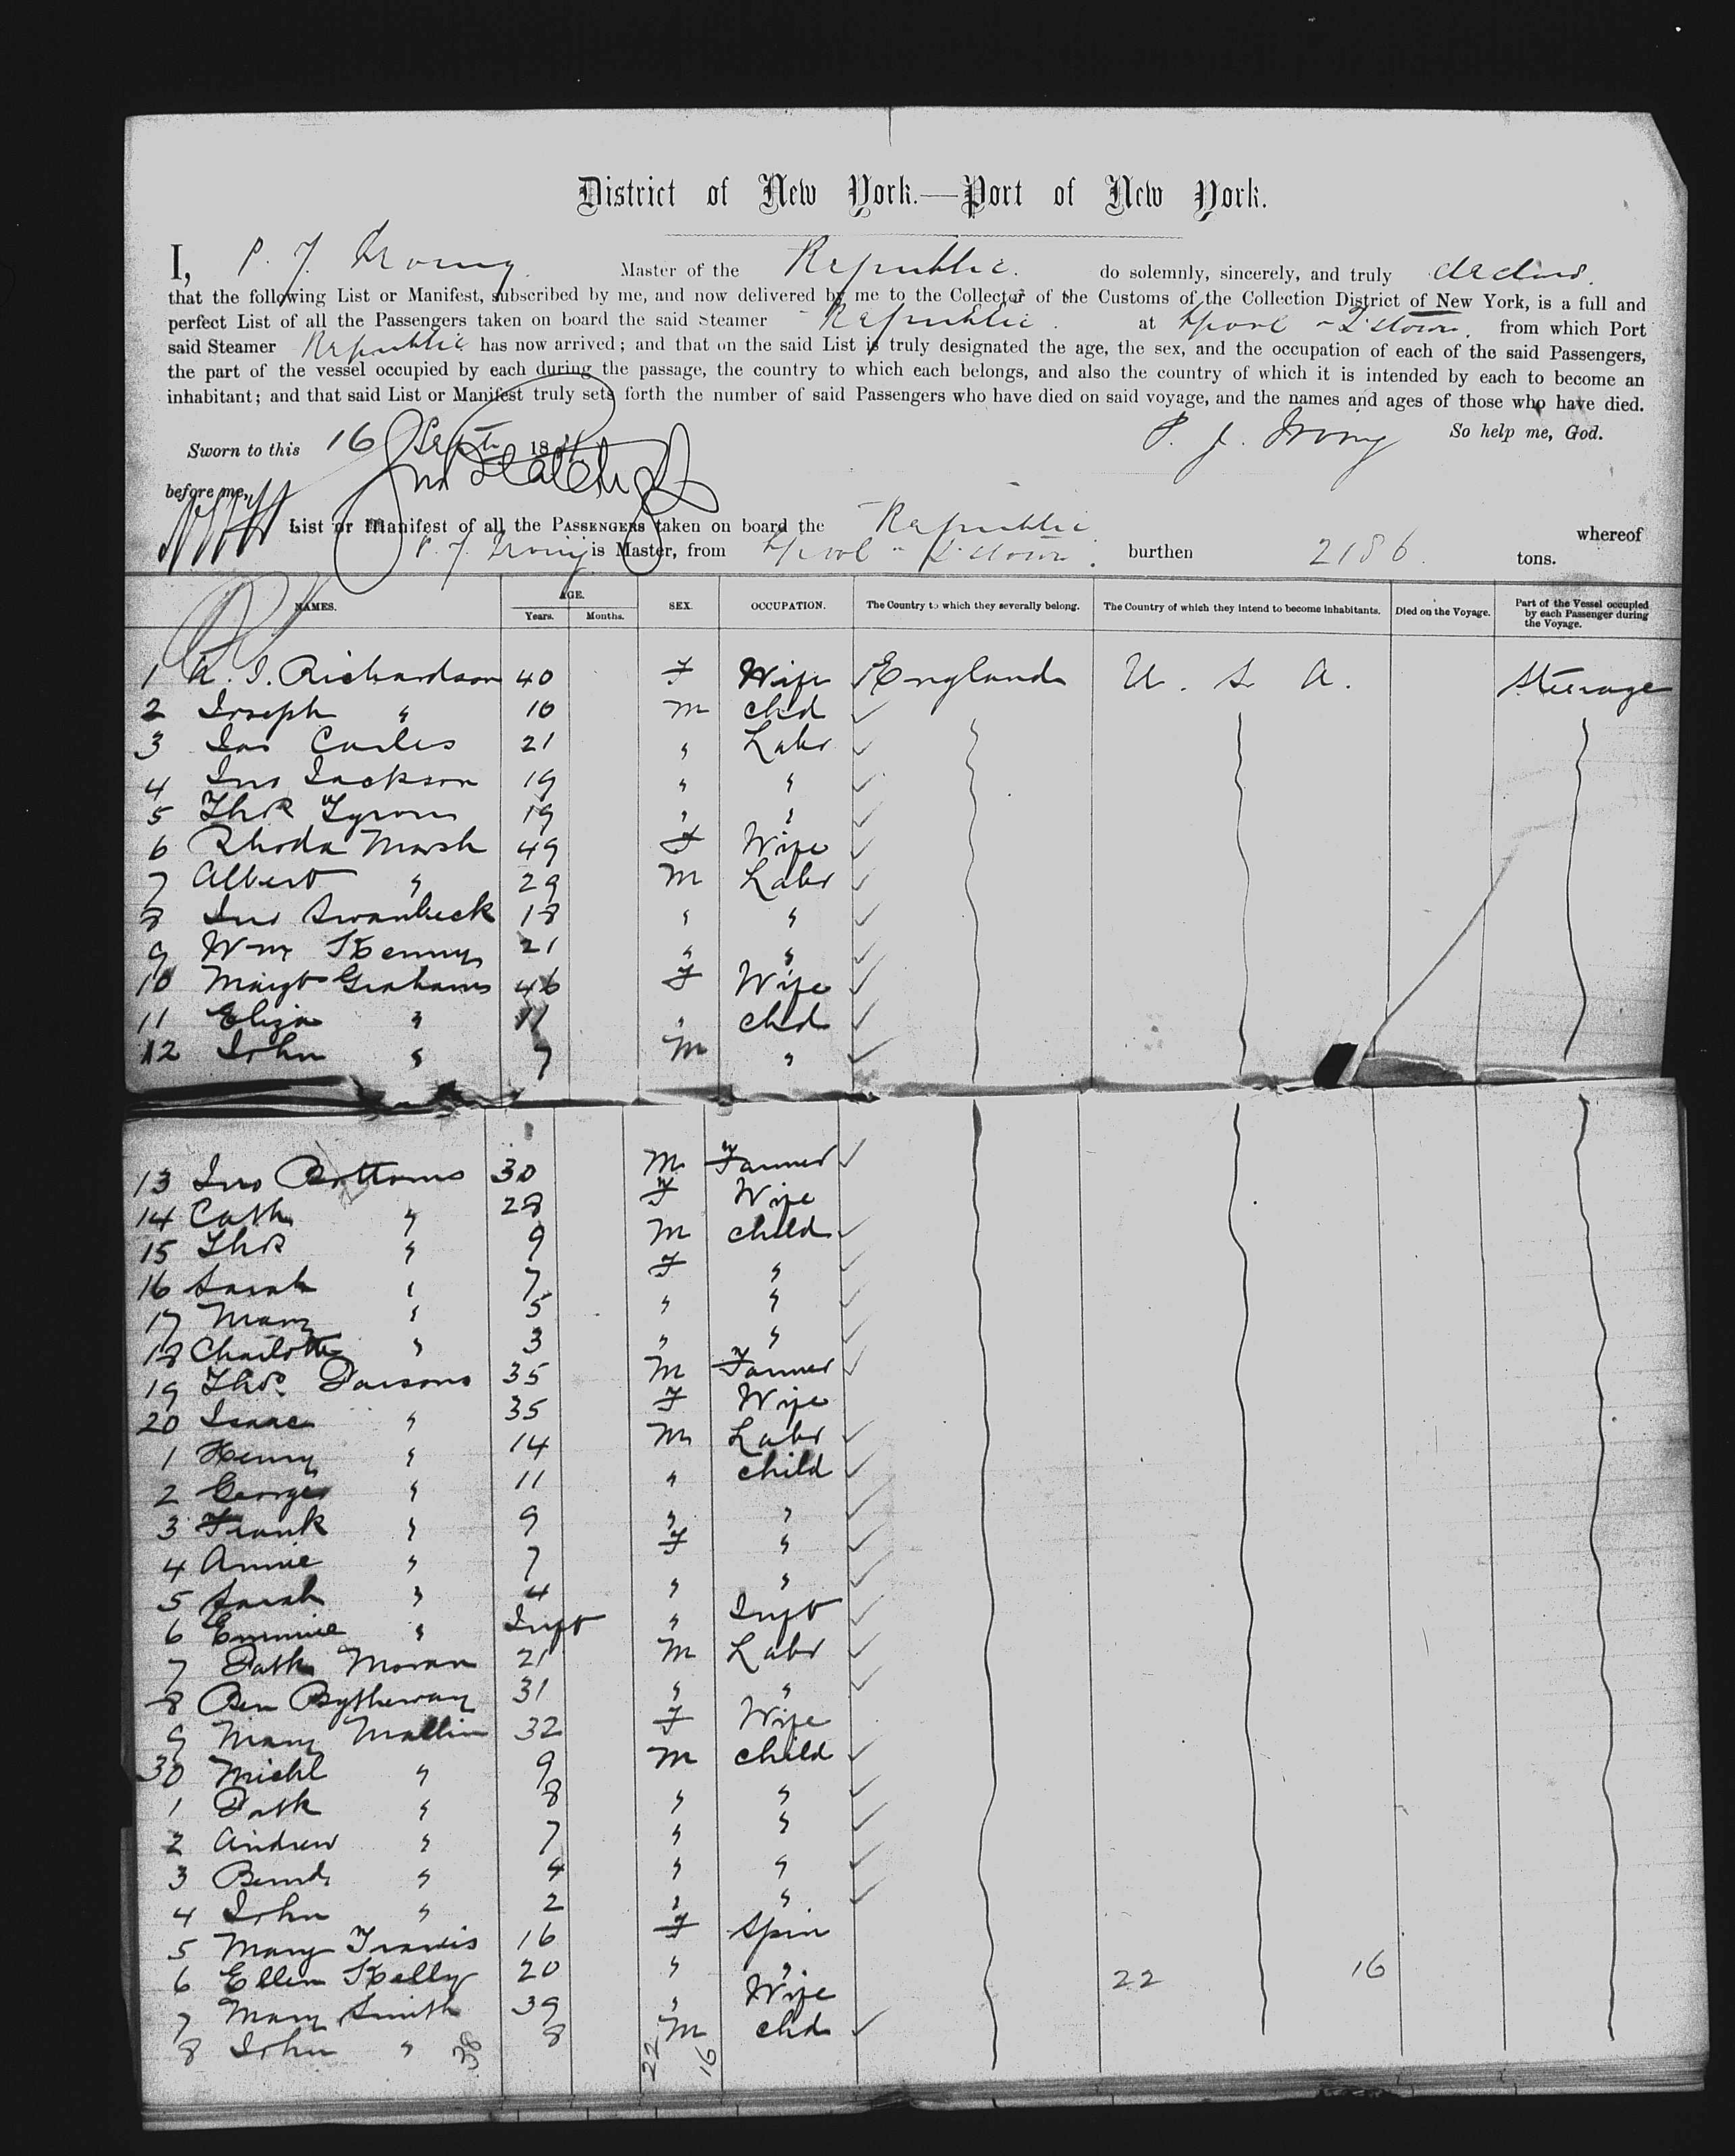 District of New York.—Port of New York.
I, P. J. Irving Master of the Republic. do solemnly, sincerely, and truly declare.
that the following List or Manifest, subscribed by me, and now delivered by me to the Collector of the Customs of the Collection District of New York, is a full and
perfect List of all the Passengers taken on board the said Steamer Republic. at Lpool - Q'stown. from which Port
said Steamer Republic has now arrived; and that on the said List is truly designated the age, the sex, and the occupation of each of the said Passengers,
the part of the vessel occupied by each during the passage, the country to which each belongs, and also the country of which it is intended by each to become an
inhabitant; and that said List or Manifest truly sets forth the number of said Passengers who have died on said voyage, and the names and ages of those who have died.
P. J. Irving So help me, God.
Sworn to this 16 Sept 18
before me,
List or Manifest of all the Passengers taken on board the Republic whereof
P. J. Irving is Master, from Lpool - Q'stown. burthen 2186. tons.
NAMES. AGE. Years. Months. SEX. OCCUPATION. The Country to which they severally belong. The Country of which they intend to become inhabitants. Died on the Voyage. Part of the Vessel occupied by each Passenger during the Voyage.
1 Richardson 40 F Wife England U. S. A. Steerage
2 Joseph " 10 M Chd
3 Jas 21 " Labr
4 Jno Jackson 19 " "
5 Thos 19 " "
6 Rhoda Marsh 49 F Wife
7 Albert " 29 M Labr
8 Jno Swanbeck 18 " "
9 Wm Kenny 21 " "
10 Margt Graham 46 F Wife
11 Eliza " 11 " Chd
12 John " 7 M "
13 Jno Bottoms 30 M Farmer
14 Cath " 28 F Wife
15 Thos " 9 M Child
16 Sarah " 7 F "
17 Mary " 5 " "
18 Charlotte " 3 " "
19 Thos. Parsons 35 M Farmer
20 Isaac " 35 F Wife
1 Henry " 14 M Labr
2 George " 11 " Child
3 Frank " 9 " "
4 Annie " 7 F "
5 Sarah " 4 " "
6 Emmie " Inft " Inft
7 Patk Moran 21 M Labr
8 Ben Bytheway 31 " "
9 Mary Mallin 32 F Wife
30 Michl " 9 M Child
1 Patk " 8 " "
2 Andrew " 7 " "
3 Bernd " 4 " "
4 John " 2 " "
5 Mary Travis 16 F Spin
6 Ellen Kelly 20 " " 22 16
7 Mary Smith 39 " Wife
8 John " 8 M Chd
38 22 16